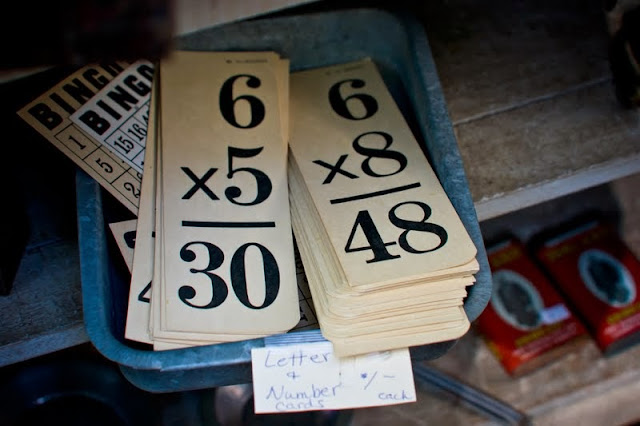 BINGO
BINGO
1
15 16
5
6
x5
30
6
x8
48
Letter
&
Number
cards
each